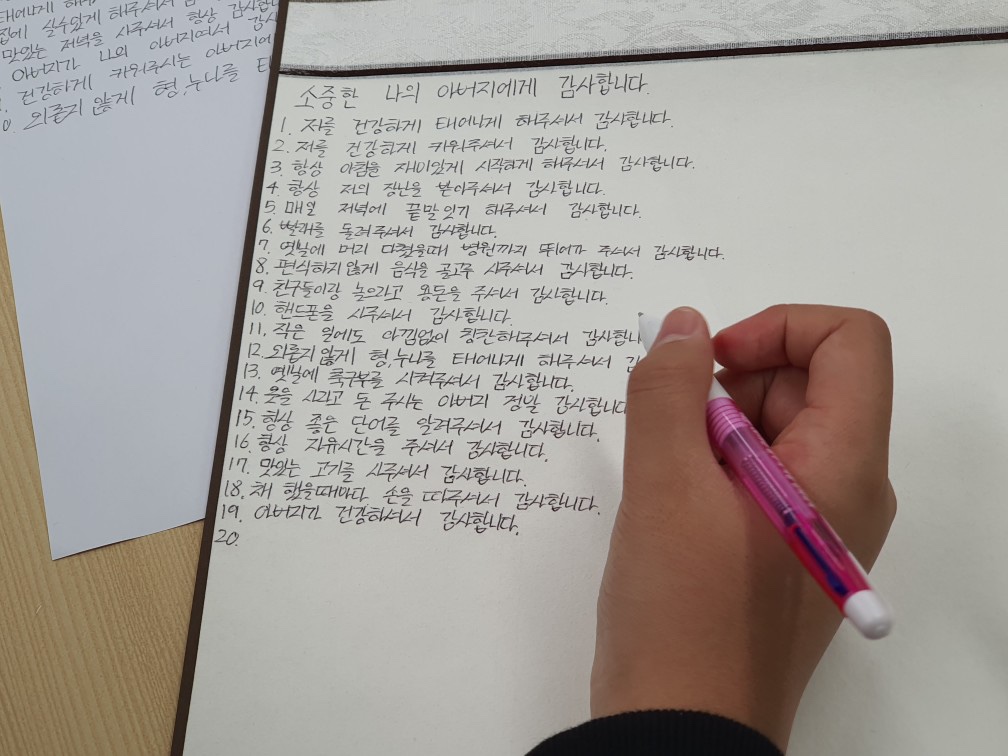 태어나게 해
집에 살수있게 해주셔서
맛있는 저녁을 사주셔서 항상 감사합니
아버지가 나의 아버지여서 감사
건강하게 키워주시는 아버지에
외롭지 않게 형,누나를 태
소중한 나의 아버지에게 감사합니다.
1. 저를 건강하게 태어나게 해주셔서 감사합니다.
2. 저를 건강하게 키워주셔서 감사합니다.
3. 항상 아침을 재미있게 시작하게 해주셔서 감사합니다.
4. 항상 저의 장난을 받아주셔서 감사합니다.
5. 매일 저녁에 끝말잇기 해주셔서 감사합니다.
6. 빨래를 돌려주셔서 감사합니다.
7. 옛날에 머리 다쳤을때 병원까지 뛰어가 주셔서 감사합니다.
8. 편식하지않게 음식을 골고루 사주셔서 감사합니다.
9. 친구들이랑 놀으라고 용돈을 주셔서 감사합니다.
10. 핸드폰을 사주셔서 감사합니다.
11. 작은 일에도 아낌없이 칭찬해주셔서 감사합니
12. 외롭지않게 형,누나를 태어나게 해주셔서 감
13. 옛날에 축구부를 시켜주셔서 감사합니다.
14. 옷을 사라고 돈 주시는 아버지 정말 감사합니다
15. 항상 좋은 단어를 알려주셔서 감사합니다.
16. 항상 자유시간을 주셔서 감사합니다.
17. 맛있는 고기를 사주셔서 감사합니다.
18. 체 했을때마다 손을 따주셔서 감사합니다.
19. 아버지가 건강하셔서 감사합니다.
20.